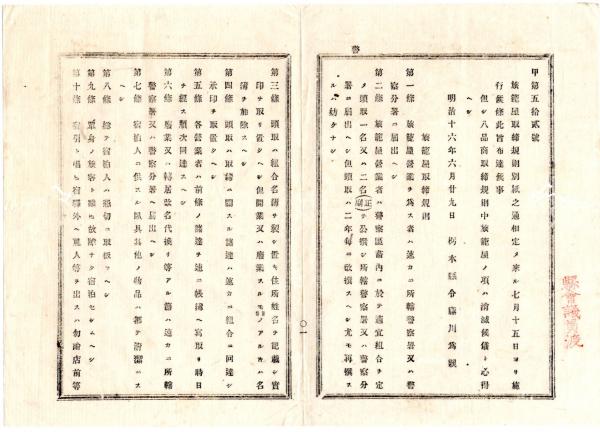 甲第五拾貳號
旅籠屋取締規則別紙之通相定メ來ル七月十五日ヨリ施
行候條此旨布達候事
但シ八品商取締規則中旅籠屋ノ項ハ消滅候儀ト心得
ヘシ
明治十六年六月廿九日 栃木縣令
旅籠屋取締規則
第一條 旅籠屋營業ヲ爲ス者ハ速カニ所轄警察署又ハ警
察分署ニ屆出ヘシ
第二條 旅籠屋營業者ハ警察區畫內ニ於テ適宜組合ヲ定
メ頭取一名又ハ二名正副ヲ公撰シ所轄警察署又ハ警察分
署ニ屆出ヘシ但頭取ハ二年每ニ改撰スヘシ尤モ再撰ス
ルハ妨ケナシ
第三條 頭取ハ組合名簿ヲ製シ置キ住所姓名ヲ記載シ實
印ヲ取リ置クヘシ但開業又ハ廢業スルモノアルトキハ名
簿ヲ加除スヘシ
第四條 頭取ハ取締ニ關スル諸達ハ速カニ組合ニ回達シ
承印ヲ取置クヘシ
第五條 各營業者ハ前條ノ諸達ヲ速ニ帳簿ヘ寫取リ時日
ヲ經ス順次回達スヘシ
第六條 廢業又ハ轉居改名代換リ等アル節ハ速カニ所轄
警察署又ハ警察分署ヘ屆出ヘシ
第七條 宿泊人ニ供スル臥具其他ノ物品ハ都テ淸潔ニス
ヘシ
第八條 總テ宿泊人ハ懇切ニ取扱フヘシ
第九條 單身ノ旅客ト雖モ故障ナク宿泊セシムヘシ
第十條 宿引ト唱ヒ宿驛外ヘ雇人等ヲ出スハ勿論店前等